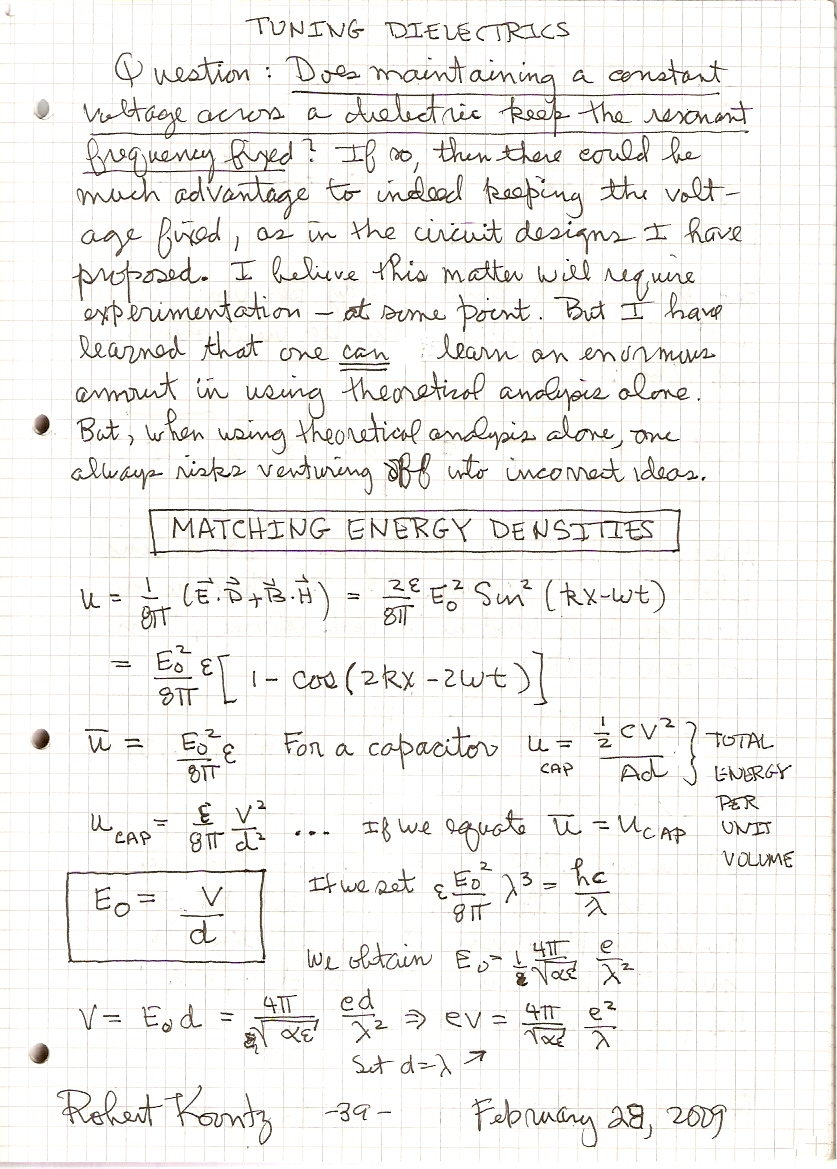 TUNING DIELECTRICS
Question: Does maintaining a constant
voltage across a dielectric keep the resonant
frequency fixed? If so, then there could be
much advantage to indeed keeping the volt-
age fixed, as in the circuit designs I have
proposed. I believe this matter will require
experimentation – at some point. But I have
learned that one can learn an enormous
amount in using theoretical analysis alone.
But, when using theoretical analysis alone, one
always risks venturing off into incorrect ideas.
MATCHING ENERGY DENSITIES
u = 1/8π (E⃗·D⃗ + B⃗·H⃗) = 2ε/8π E₀² Sin² (kx-ωt)
= E₀²/8π ε [1 - cos(2kx - 2ωt)]
ū = E₀²/8π ε For a capacitor u_CAP = ½CV²/Ad } TOTAL ENERGY PER UNIT VOLUME
u_CAP = ε/8π V²/d² ... If we equate ū = u_CAP
E₀ = V/d
If we set ε E₀²/8π λ³ = hc/λ
We obtain E₀ = 4π/√αε e/λ²
V = E₀d = 4π/√αε ed/λ² ⇒ eV = 4π/√αε e²/λ
Set d=λ ↗
Robert Koontz -39- February 28, 2009